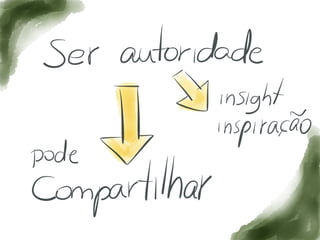 Ser autoridade
insight
inspiração
pode
Compartilhar